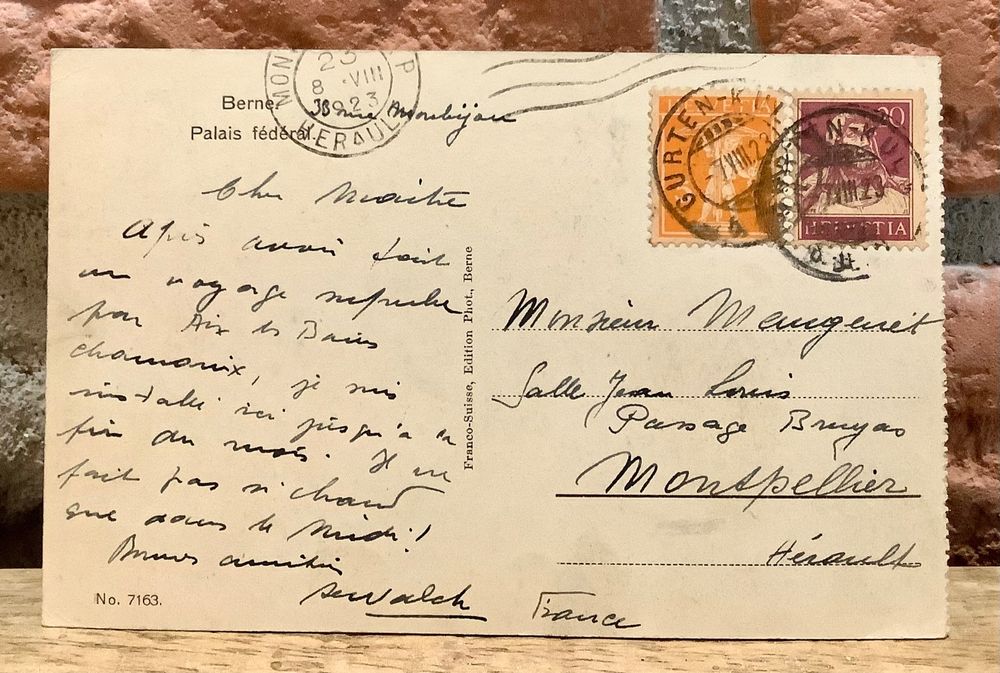 Berne.
Palais fédéral.
23
8 VIII
1923
HERAULT
33 rue Monbijou
GURTEN-KULM
7.VIII.23
GURTEN-KULM
7.VIII.23
20
HELVETIA
Cher Maître
Après avoir fait
un voyage superbe
par Aix les Bains
chamonix, je suis
installé ici jusqu'à la
fin du mois. Il ne
fait pas si chaud
que dans le Midi!
Bonnes amitiés
No. 7163.
Franco-Suisse, Edition Phot., Berne
Monsieur Maugenet
Salle Jean Louis
Passage Bruyas
Montpellier
Hérault
France